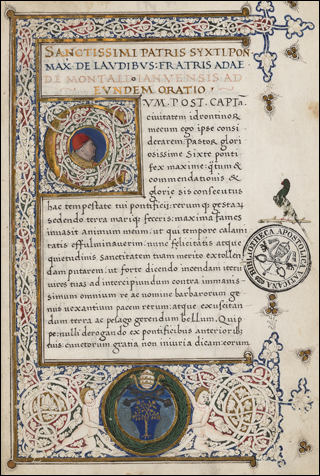 SANCTISSIMI PATRIS SYXTI PON
MAX. DE LAVDIBVS: FRATRIS ADAE
DE MONTALDO IANVENSIS AD
EVNDEM ORATIO
CVM. POST. CAPTA
ciuitatem idrontinoꝝ
mecum ego ipse consi
derarem: Pastor glori
osissime Sixte ponti
fex maxime: qtum &
commendationis &
glorie sis consecutus
hac tempestate tui pontificii: rerum qꝫ gestaꝝ
sedendo terra mariqꝫ feceris: maxima fames
inuasit Animum meum: ut qui tempore calami
tatis effulminauerim: nunc felicitatis atque
quietudinis sanctitatem tuam merito extollen
dam putarem: ut forte dicendo incendam ittui
uires tuas ad intercipiundum contra immanis
simum omnium re ac nomine barbarorum ge
nus uexantium pacem rerum: atque excitan
dum terra ac pelago gerendum bellum. Quip
pe: nulli derogando ex pontificibus anterioribꝫ
tuis: cunctorum gratia non iniuria dicam: eorum
BIBLIOTHECA APOSTOLICA VATICANA